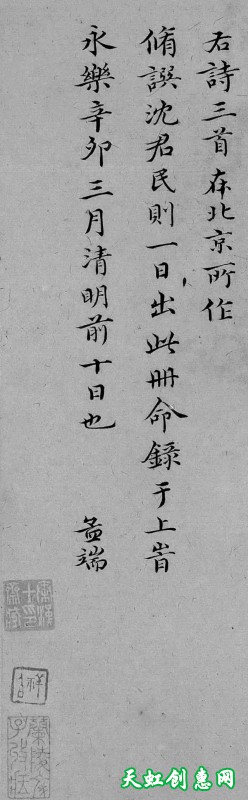 右詩三首在北京所作
脩譔沈君民則一日出此冊命錄于上旹
永樂辛卯三月清明前十日也
孟端
天虹创意网